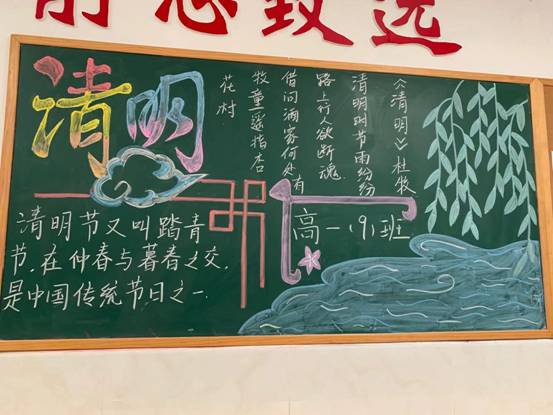 致远
清明
《清明》杜牧
清明时节雨纷纷
路上行人欲断魂
借问酒家何处有
牧童遥指杏
花村
高一(9)班
清明节又叫踏青
节,在仲春与暮春之交,
是中国传统节日之一.